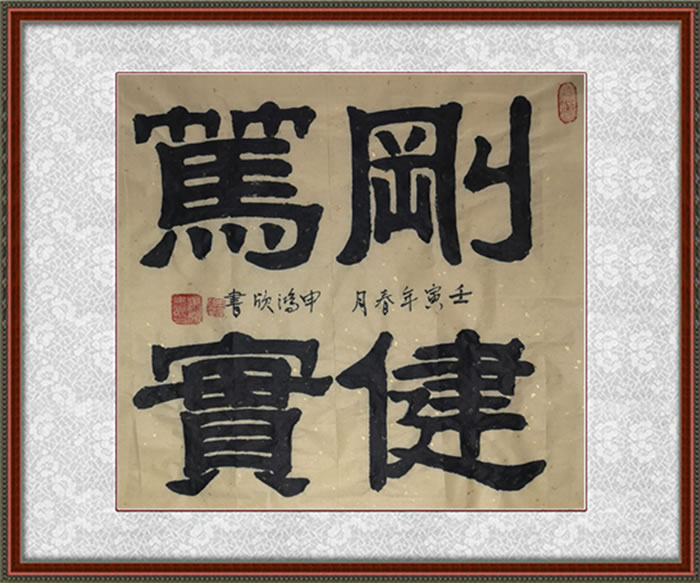 剛健
篤實
壬寅年春月 申鴻欣書